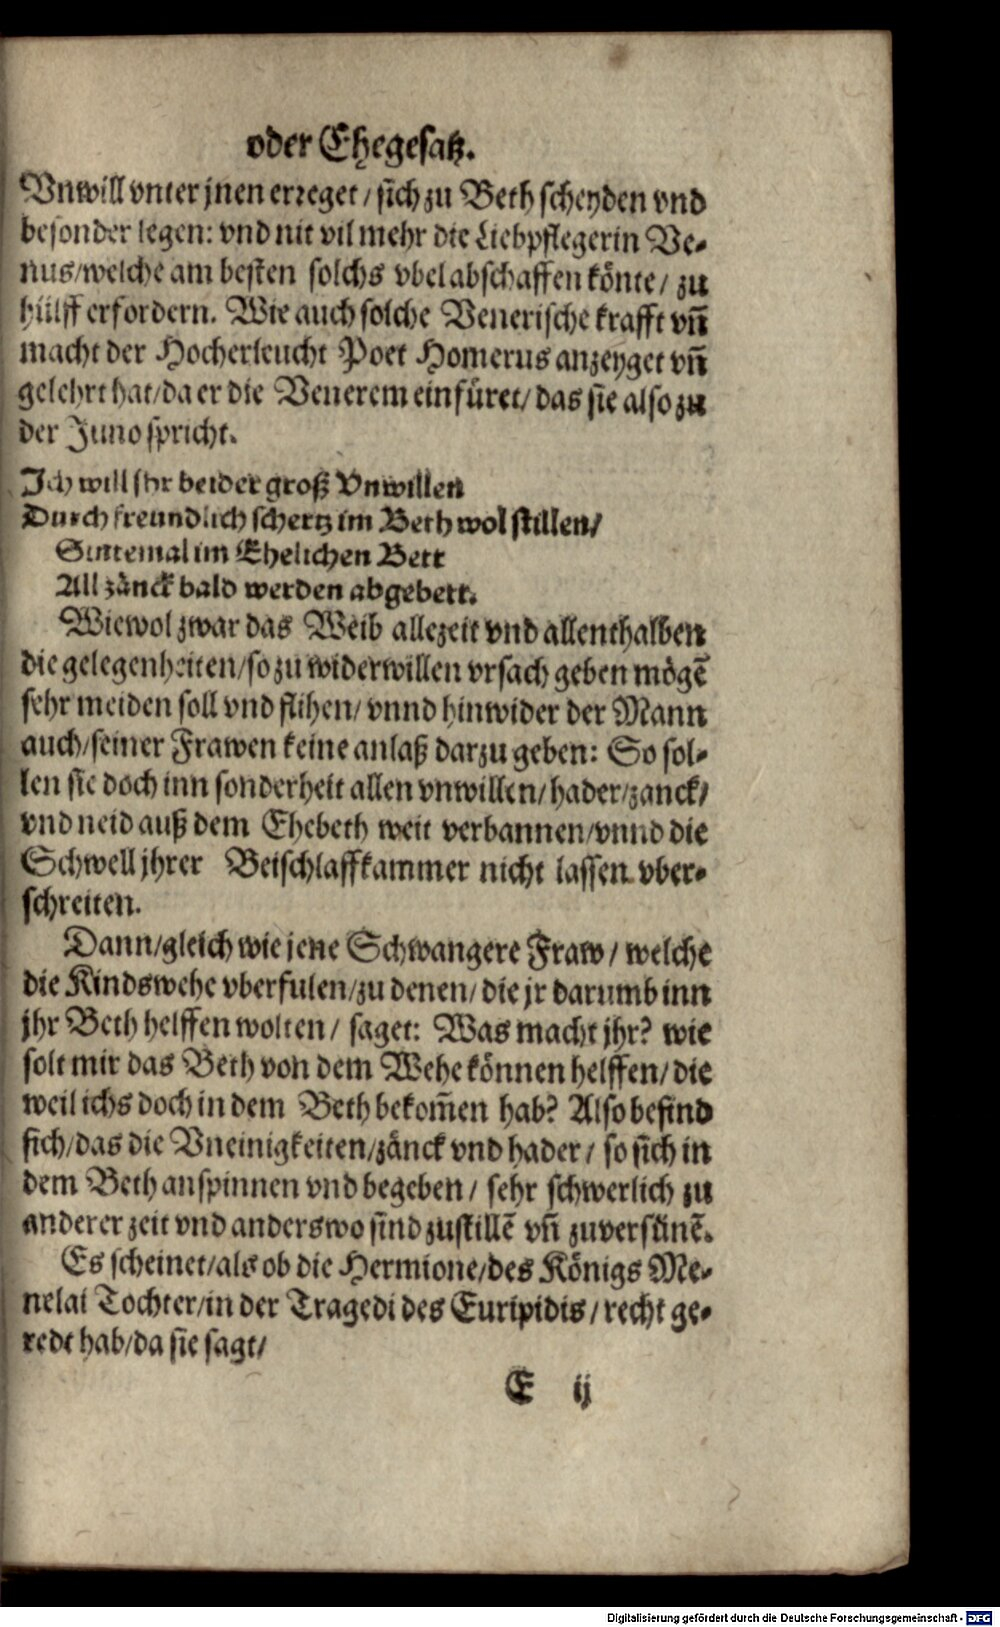 oder Ehegesatz.
Vnwill vnter jnen erreget / sich zu Beth scheyden vnd
besonder legen: vnd nit vil mehr die Liebpflegerin Ve-
nus/welche am besten solchs vbel abschaffen könte / zu
hülff erfordern. Wie auch solche Venerische krafft vñ
macht der Hocherleucht Poet Homerus anzeyget vñ
gelehrt hat/da er die Venerem einfüret/das sie also zu
der Juno spricht.
Ich will jhr beider groß Vnwillen
Durch freundlich schertz im Beth wol stillen/
Sintemal im Ehelichen Bett
All zänck bald werden abgebett.
Wiewol zwar das Weib allezeit vnd allenthalben
die gelegenheiten/so zu widerwillen vrsach geben mögẽ
sehr meiden soll vnd flihen/ vnnd hinwider der Mann
auch/seiner Frawen keine anlaß darzu geben: So sol-
len sie doch inn sonderheit allen vnwillen/hader/zanck/
vnd neid auß dem Ehebeth weit verbannen/vnnd die
Schwell jhrer Beischlaffkammer nicht lassen vber-
schreiten.
Dann/gleich wie jene Schwangere Fraw / welche
die Kindswehe vberfulen/zu denen/die jr darumb inn
jhr Beth helffen wolten / saget: Was macht jhr? wie
solt mir das Beth von dem Wehe können helffen/die
weil ichs doch in dem Beth bekom̃en hab? Also befind
sich/das die Vneinigkeiten/zänck vnd hader / so sich in
dem Beth anspinnen vnd begeben / sehr schwerlich zu
anderer zeit vnd anderswo sind zustillẽ vñ zuversünẽ.
Es scheinet/als ob die Hermione/des Königs Me-
nelai Tochter/in der Tragedi des Euripidis / recht ge-
redt hab/da sie sagt/
E ij
Digitalisierung gefördert durch die Deutsche Forschungsgemeinschaft - DFG